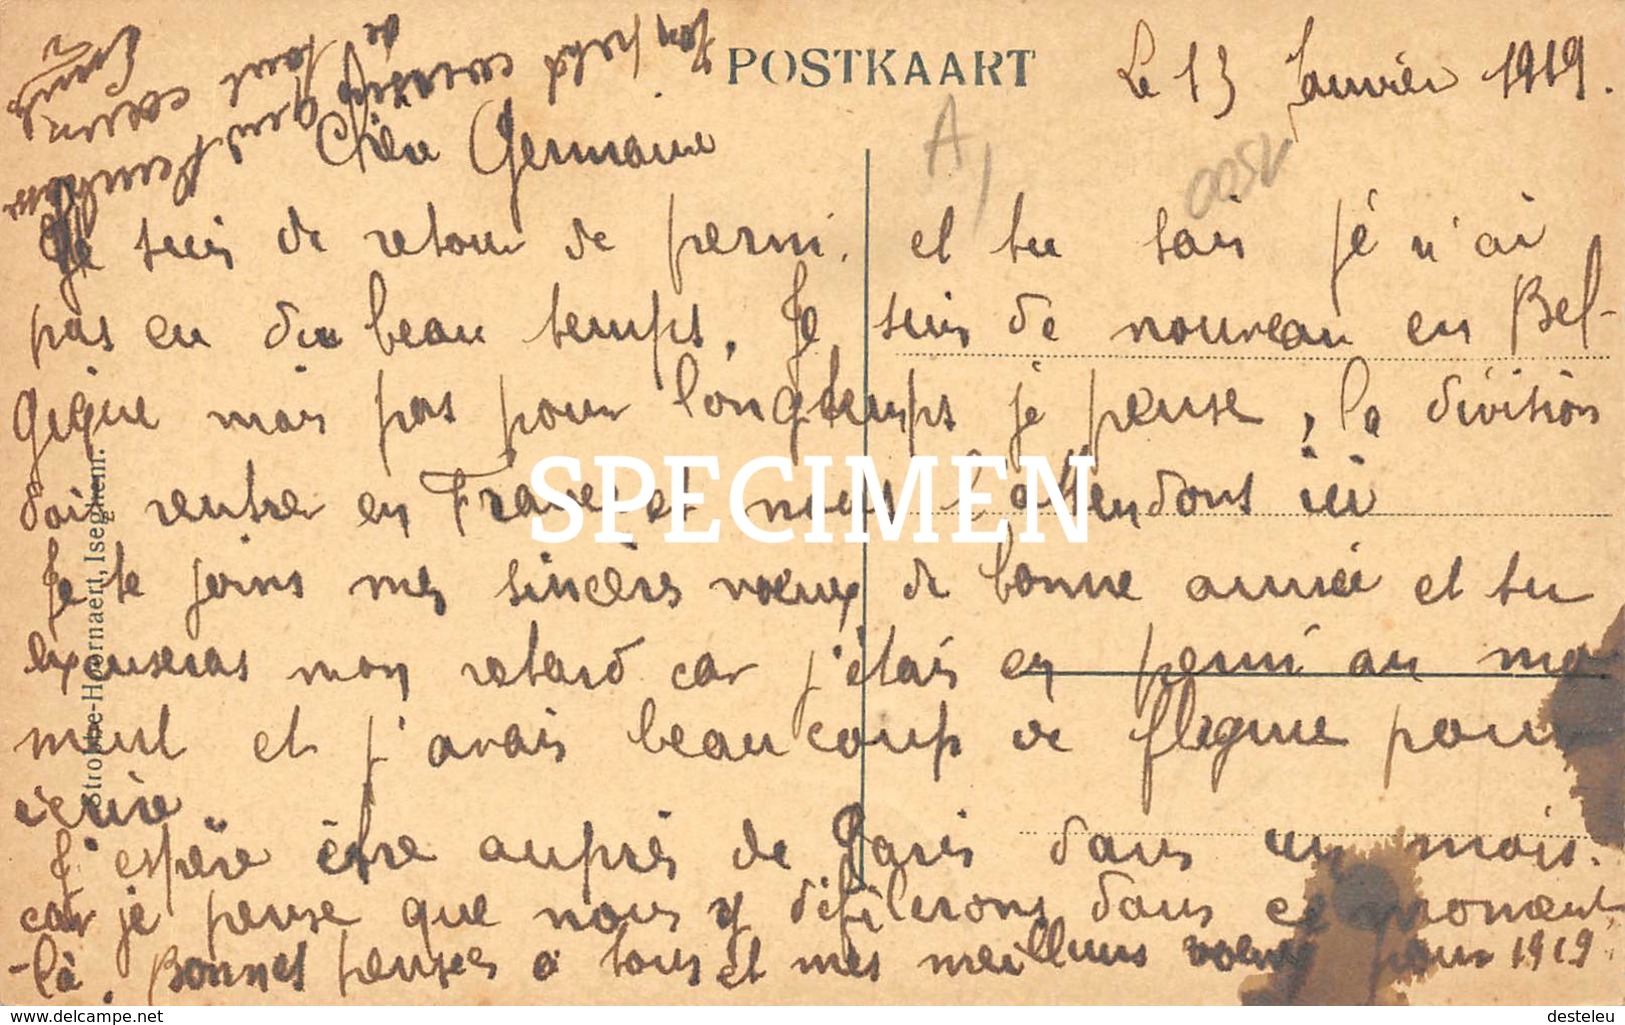 POSTKAART
Le 13 Janvier 1919.
Chère Germaine
Je suis de retour de permi. et tu sais jé n'ai
pas eu du beau temps. Je suis de nouveau en Bel-
gique mais pas pour longtemps je pense, la division
doit rentrer en France et nous l'attendons ici
Je te joins mes sincères voeux de bonne année et tu
excuseras mon retard car j'étais en permi au mo
ment et j'avais beaucoup de flegme pour
écrire.
J'espère être auprès de Paris dans un mois.
car je pense que nous y défilerons dans ce moment
-là. Bonnes pensées a tous et mes meilleurs voeux pour 1919.
Ton petit cousin
de
qui t'embrasse
tout coeur
Strobbe-Hoornaert, Iseghem.
A,
SPECIMEN
www.delcampe.net
desteleu